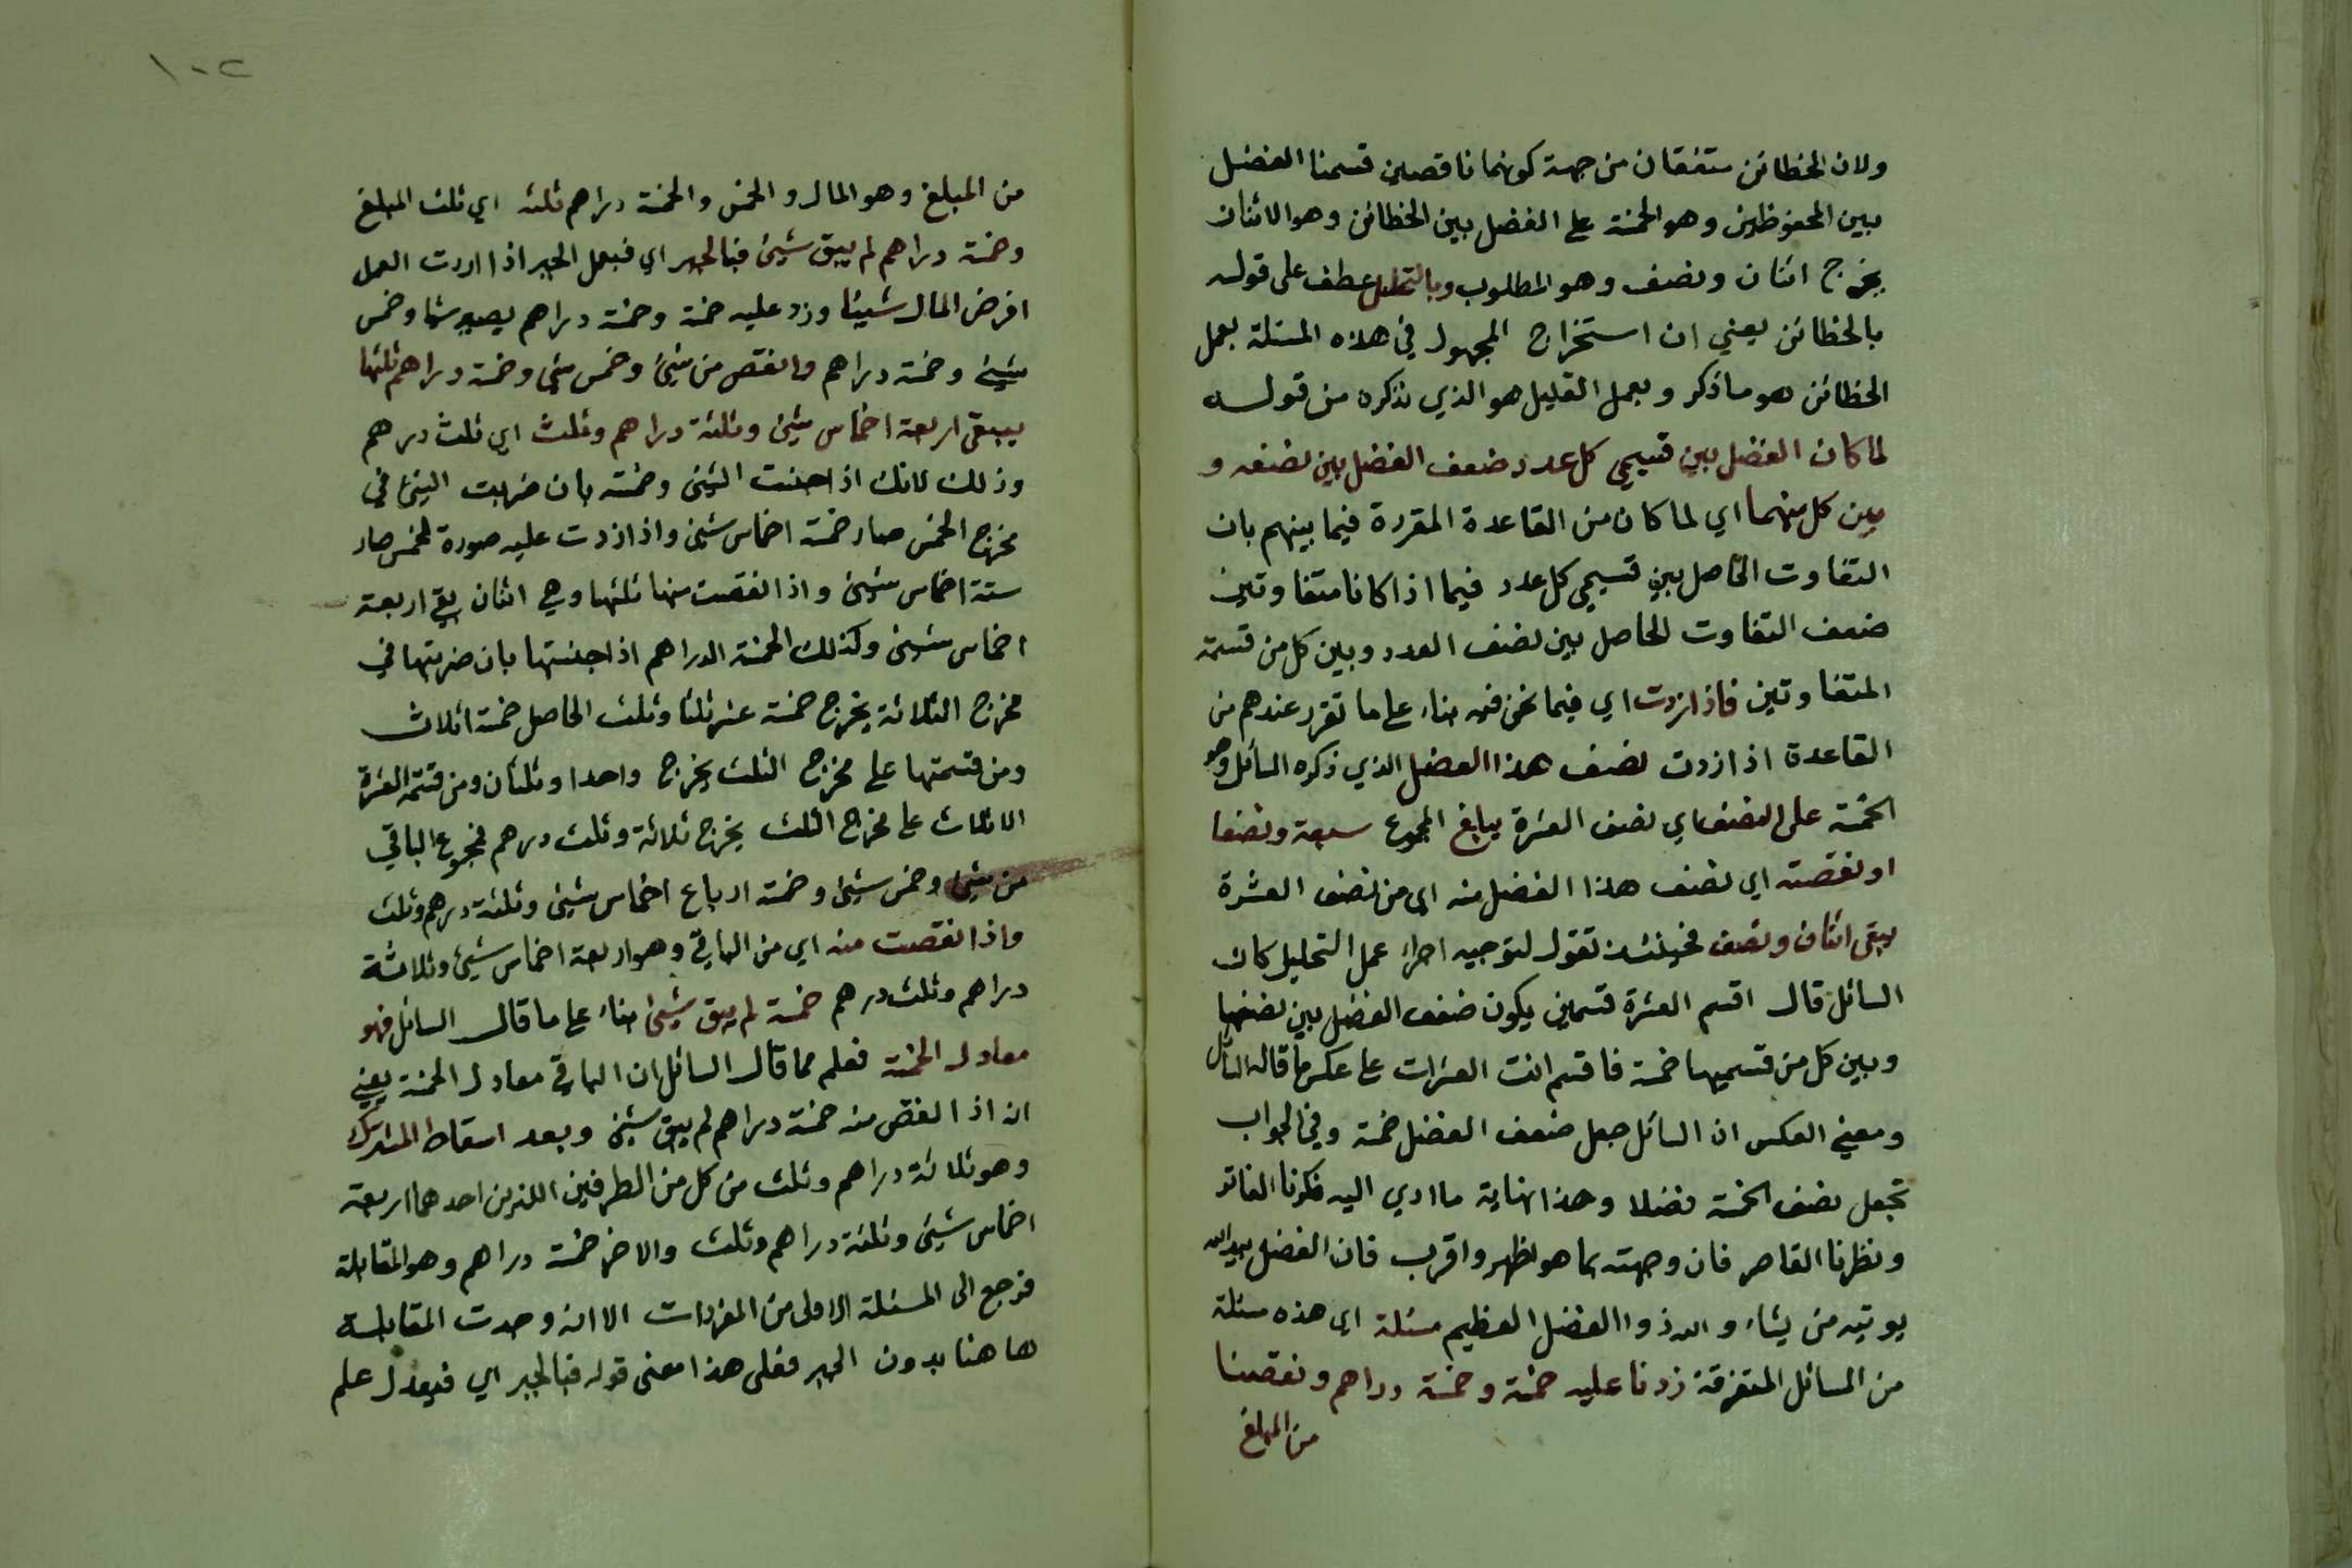 ولان الخطائن متفقان من جهة كونهما ناقصين قسمنا الفضل
بين المحفوظين وهو الخمسة على الفضل بين الخطائن وهو الاثنان
يخرج اثنان ونصف وهو المطلوب وبالتحليل عطف على قوله
بالخطائن يعني ان استخراج المجهول في هذه المسئلة بعمل
الخطائن هو ما ذكر وبعمل التحليل هو الذي نذكره من قوله
لما كان الفضل بين قسيمي كل عدد ضعف الفضل بين نصفه و
بين كل منهما اي لما كان من القاعدة المقررة فيما بينهم بان
التفاوت الحاصل بين قسيمي كل عدد فيما اذا كانا متفاوتين
ضعف التفاوت الحاصل بين نصف العدد وبين كل من قسمة
المتفاوتين فاذا زدت اي فيما نحن فيه بناء على ما تقرر عندهم من
القاعدة اذا زدت نصف هذا الفضل الذي ذكره السائل وهو
الخمسة على النصف اي نصف العشرة يبلغ المجموع سبعة ونصفا
او نقصته اي نصف هذا الفضل منه اي من نصف العشرة
يبقى اثنان ونصف فحينئذ نقول لتوجيه اجراء عمل التحليل كان
السائل قال اقسم العشرة قسمين يكون ضعف الفضل بين نصفها
وبين كل من قسميها خمسة فاقسم انت العشرات على عكس ما قاله السائل
ومعنى العكس ان السائل جعل ضعف الفضل خمسة وفي الجواب
تجعل نصف الخمسة فضلا وهذا نهاية ما ادي اليه فكرنا الفاتر
ونظرنا القاصر فان وجهته بما هو اظهر واقرب فان الفضل بيد الله
يوتيه من يشاء والله ذوا الفضل العظيم مسئلة اي هذه مسئلة
من المسائل المتفرقة زدنا عليه خمسة وخمسة دراهم ونقصنا
من المبلغ
١٠٢
من المبلغ وهو المال والخمس والخمسة دراهم ثلثه اي ثلث المبلغ
وخمسة دراهم لم يبق شيئ فبالجبر اي فبعمل الجبر اذا اردت العمل
افرض المال شيئا وزد عليه خمسة وخمسة دراهم يصير شيئا وخمس
شيئ وخمسة دراهم وانقص من شيئ وخمس شيئ وخمسة دراهم ثلثها
يبقى اربعة اخماس شيئ وثلثة دراهم وثلث اي ثلث درهم
وذلك لانك اذا جنست الشيئ وخمسه بان ضربت الشيئ في
مخرج الخمس صار خمسة اخماس شيئ واذا زدت عليه صورة الخمس صار
ستة اخماس شيئ واذا نقصت منها ثلثها وهي اثنان بقي اربعة
اخماس شيئ وكذلك الخمسة الدراهم اذا جنستها بان ضربتها في
مخرج الثلاثة يخرج خمسة عشر ثلثا وثلث الحاصل خمسة اثلاث
ومن قسمتها على مخرج الثلث يخرج واحدا وثلثان ومن قسمة العشرة
الاثلاث على مخرج الثلث يخرج ثلاثة وثلث درهم فمجموع الباقي
من شيئ وخمس شيئ وخمسة ارباع اخماس شيئ وثلثة درهم وثلث
واذا نقصت منه اي من الباقي وهو اربعة اخماس شيئ وثلاثة
دراهم وثلث درهم خمسة لم يبق شيئ بناء على ما قال السائل فهو
معادل الخمسة فعلم مما قال السائل ان الباقي معادل الخمسة يعني
ان اذا انقص منه خمسة دراهم لم يبق شيئ وبعد اسقاط المشترك
وهو ثلاثة دراهم وثلث من كل من الطرفين اللذين احدهما اربعة
اخماس شيئ وثلثة دراهم وثلث والاخر خمسة دراهم وهو المقابلة
فرجع الى المسئلة الاولى من المفردات الا انه وجدت المقابلة
هاهنا بدون الجبر فعلى هذا معنى قوله فبالجبر اي فيعدل علم